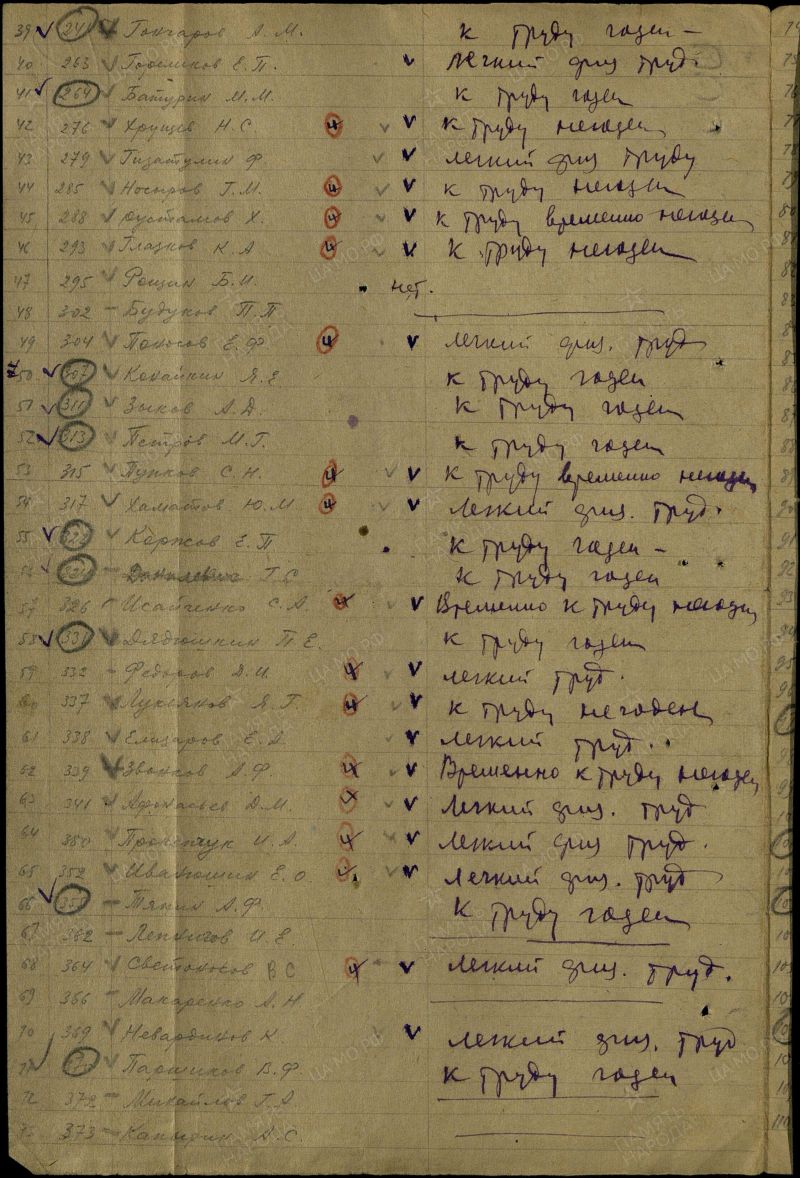 39 241 Гончаров А. М. К труду годен —
40 263 Гореликов Е. П. Легкий физ труд.
41 264 Батурин М. М. К труду годен
42 276 Хрущев Н. С. 4 К труду негоден
43 279 Гизатулин Ф. легкий физ труду
44 285 Носыров Г. М. 4 К труду негоден
45 288 Рустамов Х. 4 К труду временно негоден
46 293 Глазков К А 4 К труду негоден
47 295 Рощин Б. И. нет.
48 302 — Будуков П. П
49 304 Поносов Е. Ф 4 легкий физ. труд
50 307 Кокайкин Я. Е К труду годен
51 311 Зыков А. Д. К труду годен
52 313 Петров М. Г. К труду годен
53 315 Пупков С. Н. 4 К труду временно негоден
54 317 Хаматов Ю. М 4 Легкий физ. труд.
55 Каржов Е. П К труду годен —
Г С К труду годен
57 326 Исайченко С. А. 4 Временно к труду негоден
58 331 Дядюшкин П Е. К труду годен
59 332 — Федоров Д. И. 4 легкий труд.
60 337 Лукьяков Я. Г. 4 К труду негоден
61 338 Елизаров Е. А легкий труд..
62 339 Звонков А. Ф. 4 Временно к труду негоден
63 341 Афонасьев Д. М. 4 Легкий физ. труд
64 350 Прокопчук И. А 4 Легкий физ труд.
65 352 Иванюшин Е. О 4 Легкий физ. труд
66 Тяпин А. Ф. К труду годен
67 362 — И. Е
68 364 Светоносов В С 4 Легкий физ. труд.
69 366 — Макаренко А. Н
70 369 Невардиков К легкий физ. труд
71 Паршиков В. Ф. К труду годен
72 372 — Михайлов Г. А
73 373 — А. С.